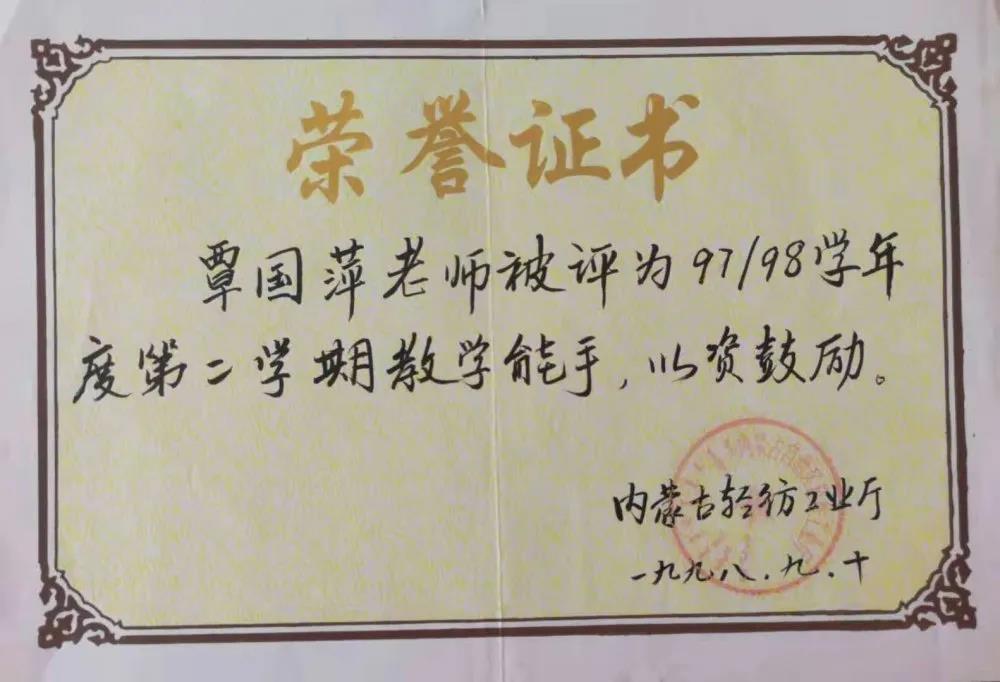 荣誉证书
覃国萍老师被评为97/98学年
度第二学期教学能手,以资鼓励。
内蒙古轻纺工业厅
一九九八.九.十